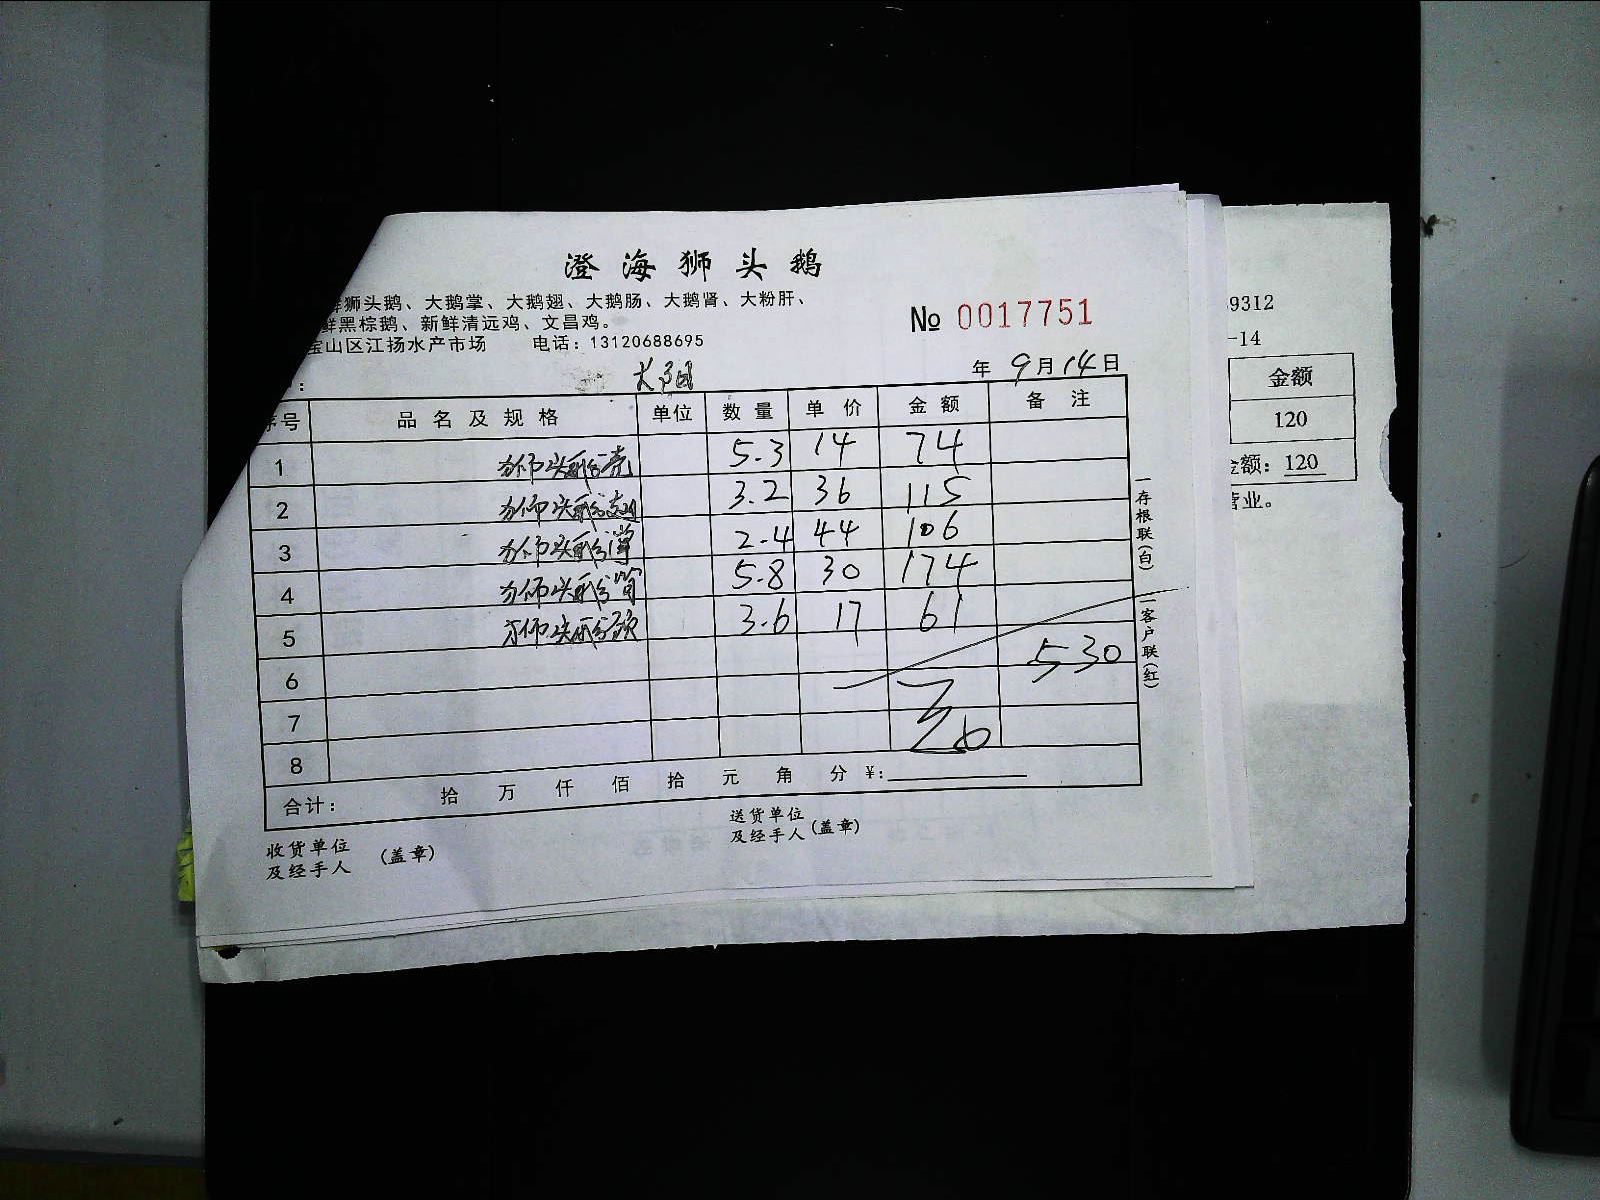 澄海狮头鹅
鲜狮头鹅、大鹅掌、大鹅翅、大鹅肠、大鹅肾、大粉肝、
鲜黑棕鹅、新鲜清远鸡、文昌鸡。
№ 0017751
宝山区江扬水产市场 电话：13120688695
：
年 9月14日
序号 品名及规格 单位 数量 单价 金额 备注
1 5.3 14 74
2 3.2 36 115
3 2.4 44 106
4 5.8 30 174
5 3.6 17 61
6 530
7
8
合计： 拾 万 仟 佰 拾 元 角 分 ¥：
收货单位
及经手人 （盖章）
送货单位
及经手人（盖章）
一存根联（白）
一客户联（红）
9312
-14
金额
120
金额：120
营业。